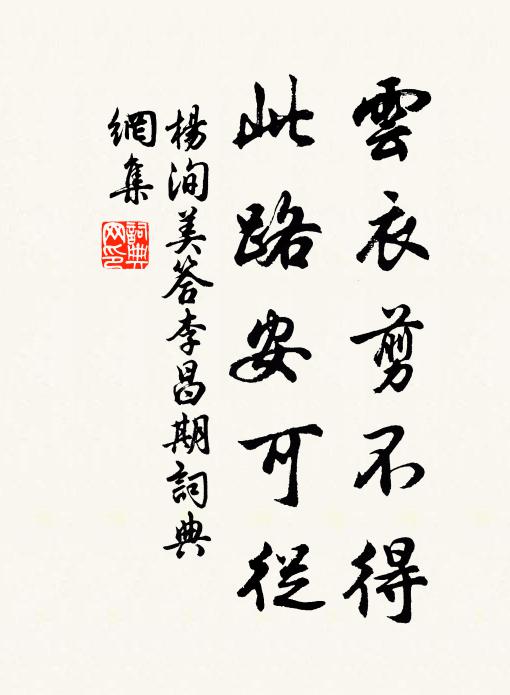 雲衣剪不得
此路安可從
楊洵美答李昌期詞典
網集
詞典
网印